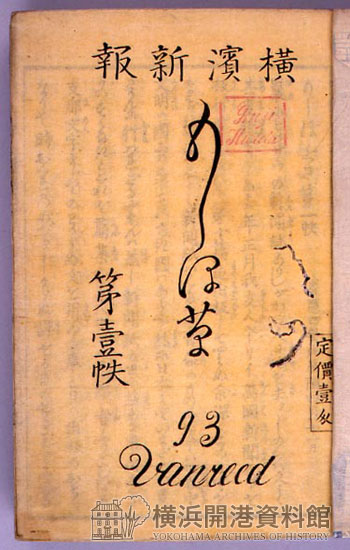 橫濱新報
もしほ草
第壹帙
定價壹匁
93
Vanreed
横浜開港資料館
YOKOHAMA ARCHIVES OF HISTORY